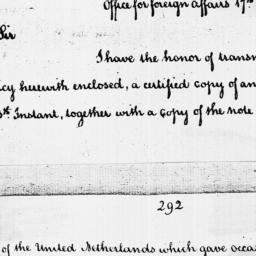 Office for foreign affairs 17th
Sir
I have the honor of transm
cy herewith enclosed, a certified copy of an
th Instant, together with a copy of the note
292
of the United Netherlands which gave occa